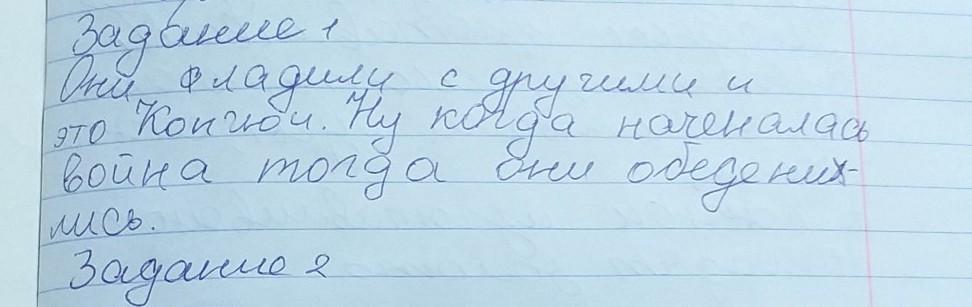 Задание 1
Они владили с другими и
это Копчюи. Ну когда наченалась
война тогда они обеденил-
лись.
Задание 2